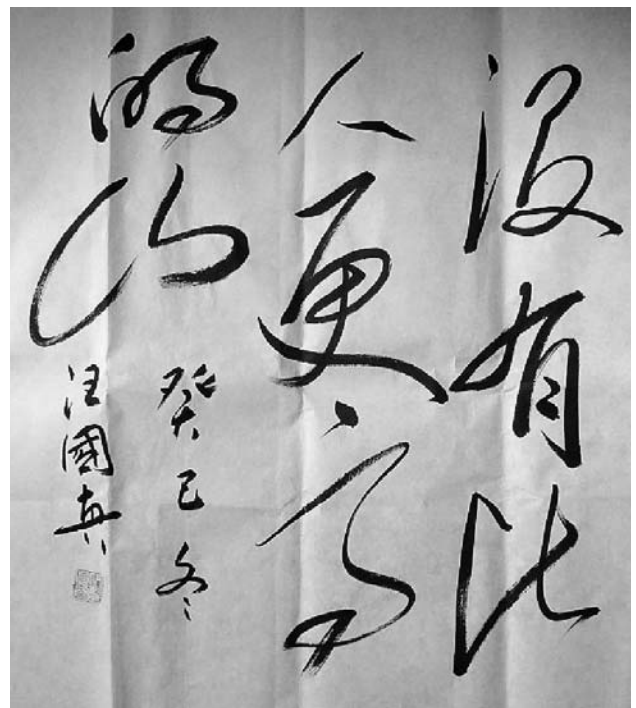 没有比
人更高
的山
癸巳冬
汪國真